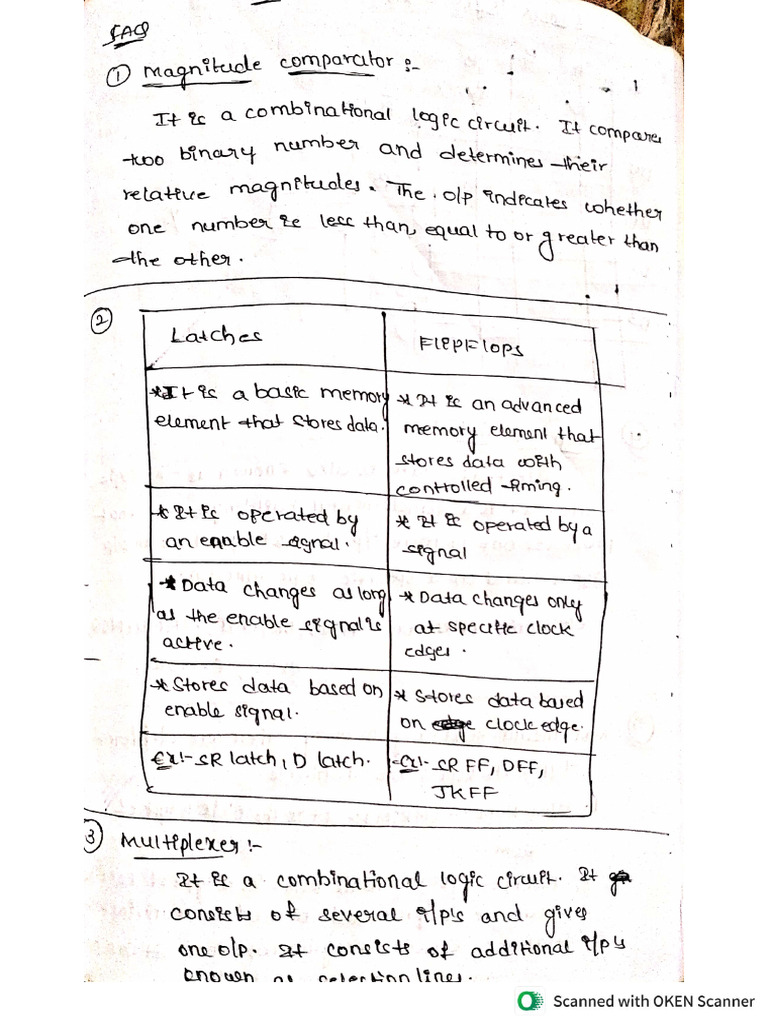 FAQ
① Magnitude comparator :-
It is a combinational logic circuit. It compares
two binary number and determines their
relative magnitudes. The o/p indicates whether
one number is less than, equal to or greater than
the other.
②
Latches
FlipFlops
*It is a basic memory
element that stores data.
* It is an advanced
memory element that
stores data with
controlled timing.
* It is operated by
an enable signal.
* It is operated by a
signal
* Data changes as long
as the enable signal is
active.
* Data changes only
at specific clock
edges.
* Stores data based on
enable signal.
* Stores data based
on clock edge.
Ex:- SR latch, D latch.
Ex:- SR FF, DFF,
JKFF
③ Multiplexer :-
It is a combinational logic circuit. It
consists of several i/p's and gives
one o/p. It consists of additional i/p's
known as selection lines.
Scanned with OKEN Scanner